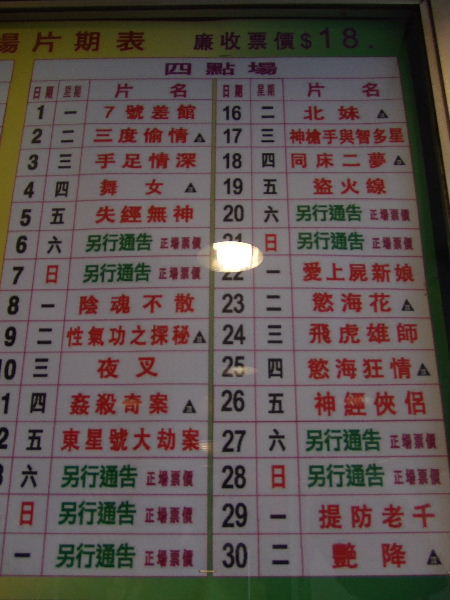 場片期表 廉收票價$18.
四點場
日期 星期 片名
1 一 7號差館
2 二 三度偷情
3 三 手足情深
4 四 舞女
5 五 失經無神
6 六 另行通告 正場票價
7 日 另行通告 正場票價
8 一 陰魂不散
9 二 性氣功之探秘
10 三 夜叉
1 四 姦殺奇案
2 五 東星號大劫案
六 另行通告 正場票價
日 另行通告 正場票價
一 另行通告 正場票價
日期 星期 片名
16 二 北妹
17 三 神槍手與智多星
18 四 同床二夢
19 五 盜火線
20 六 另行通告 正場票價
21 日 另行通告 正場票價
22 一 愛上屍新娘
23 二 慾海花
24 三 飛虎雄師
25 四 慾海狂情
26 五 神經俠侶
27 六 另行通告 正場票價
28 日 另行通告 正場票價
29 一 提防老千
30 二 艷降